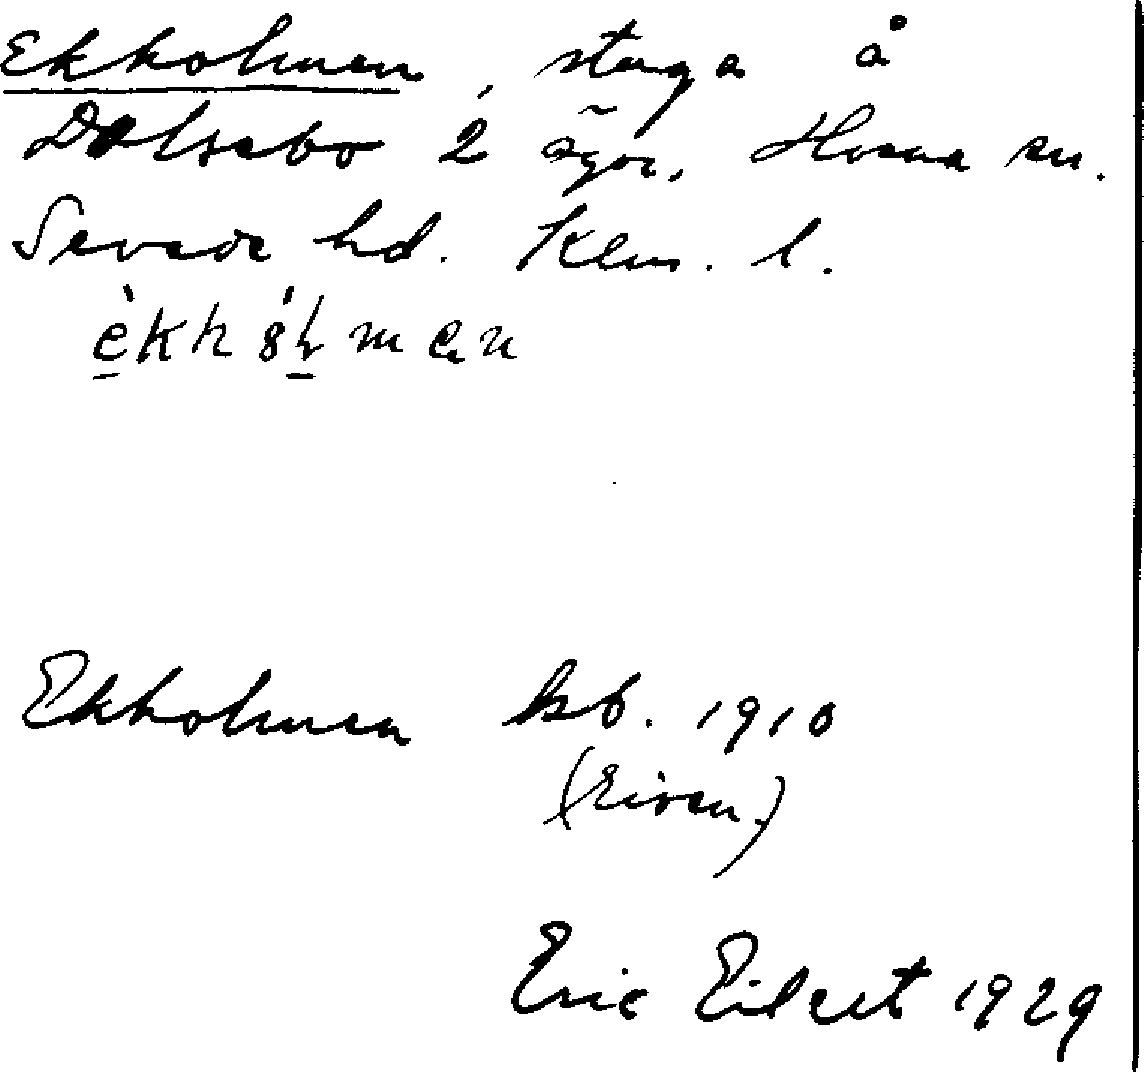 Ekholmen, stuga å
Dalsebo 2 ägor, Hvena sn.
Sevede hd. Klm. l.
èkhó̱lmen
Ekholmen fsb. 1910
Eric Eilert 1929